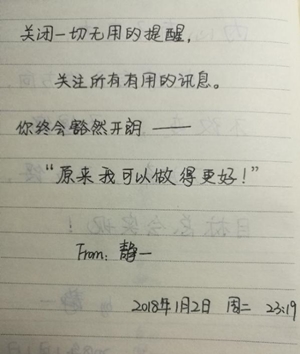 关闭一切无用的提醒，
关注所有有用的讯息。
你终会豁然开朗 ——
“原来我可以做得更好！”
From：静一
2018年1月2日 周二 23:19